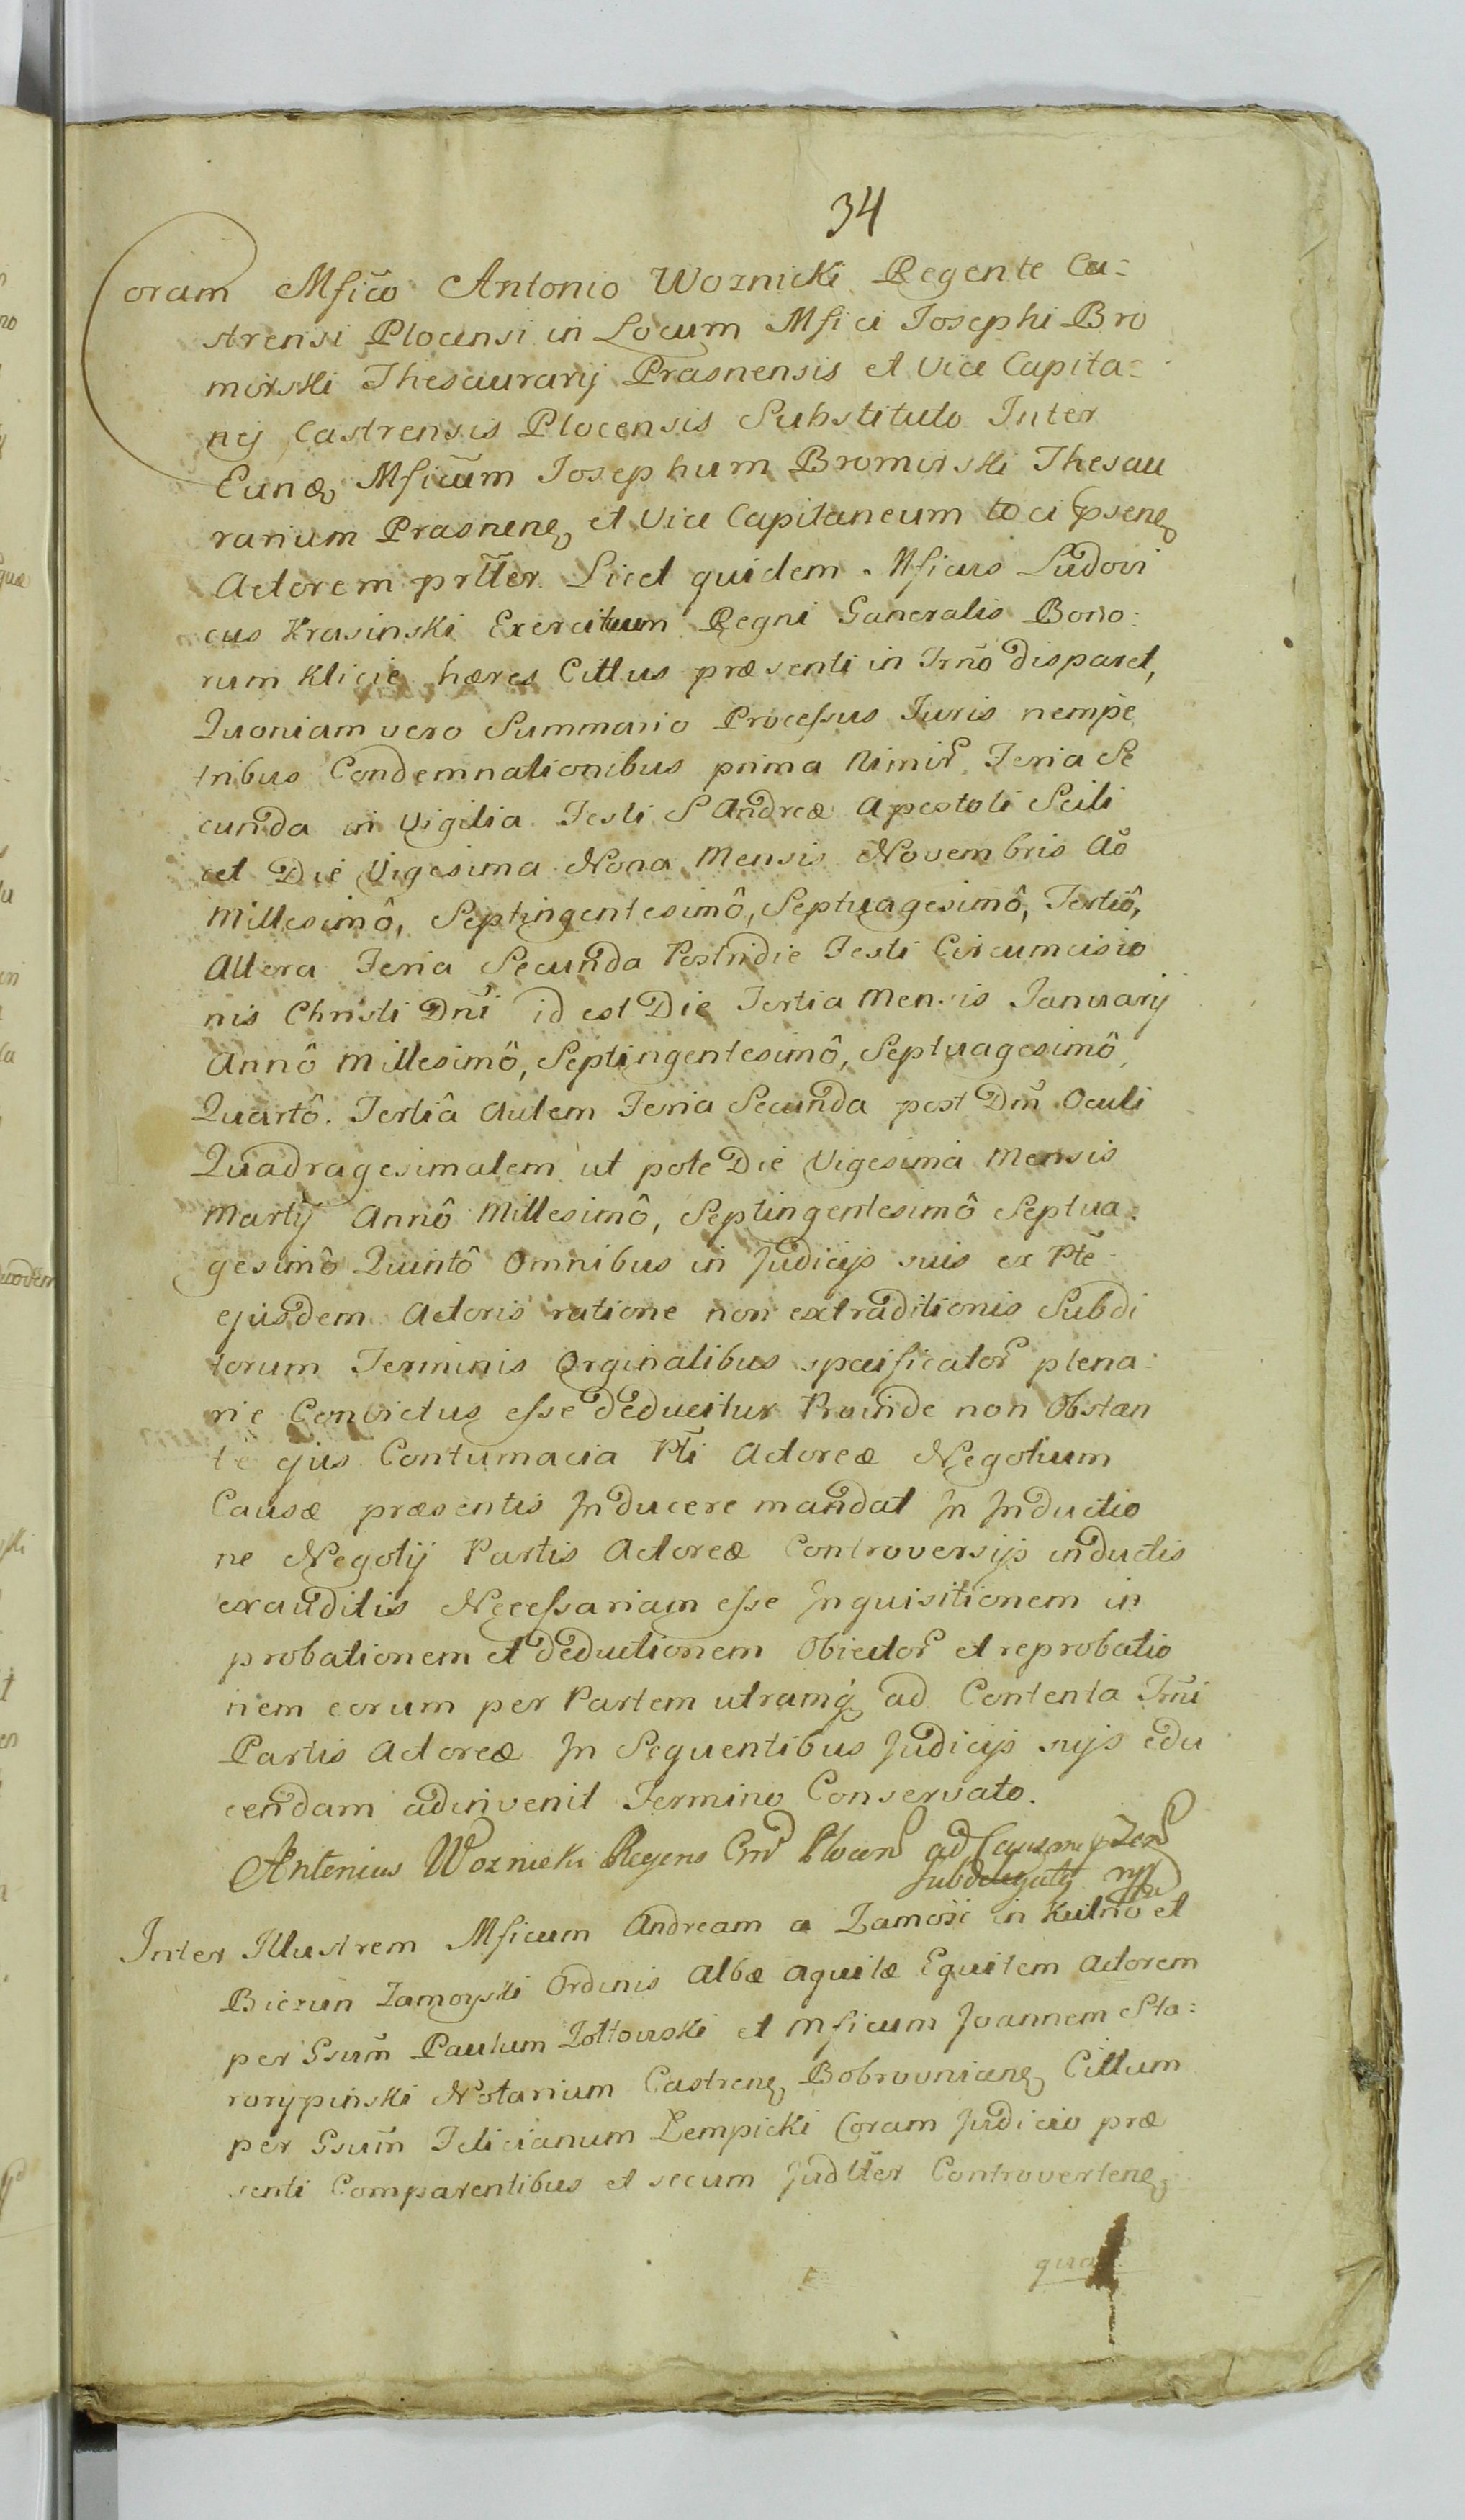 34
Coram Mficō Antonio Woznicki Regente Ca=
strensi Plocensi in Locum Mfici Josephi Bro
mirski Thesaurarij Prasnensis et Vice Capita=
nej Castrensis Plocensis Substituto Inter
Eunđ Mficūm Josephum Bromirski Thesau
rarium Prasnenę et Vice Capitaneum to ci
Actorem prtter Licet quidem Mficus Ludovi
cus Krasinski Exercituum Regni Generalis Bono:
rum Klicie hæres Cittus præsenti in Trnō disparet,
Quoniam vero Summario Processus Juris nempe
tribus Condemnationibus prima Nimir Feria Se
cunda in Vigilia Festi S Andreæ Apostoli Scili
cet Die Vigesima Nona Mensis Novembris Aō
Millesimô, Septingentesimô, Septuagesimô, Tertiô,
Altera Feria Secunda Postridie Festi Circumcisio
nis Christi Dnī id est Die Tertia Mensis Januarij
Annô Millesimô, Septingentesimô, Septuagesimô
Quartô. Tertiâ Autem Feria Secunda post Dm̄ Oculi
Quadragesimalem ut pote Die Vigesima Mensis
Martij Annô Millesimô, Septingentesimô Septua:
gesimô Quintô Omnibus in Judicijs suis ex Ptē
ejusdem Actoris ratione non extraditionis Subdi
torum Terminis Orginalibus specificator plena:
rie Convictus esse deducitur Proinde non Obstan
te ejus Contumacia Ptī Actoreæ Negotium
Causæ præsentis Inducere mandat In Inductio
ne Negotij Partis Actoreæ Controversijs inductis
exauditis Necessariam esse Inquisitionem in
probationem et deductionem Obiector et reprobatio
nem eorum per Partem utramq ad Contenta Trnī
Partis Actoreæ In Sequentibus Judicijs sujs edu
cendam adinvenit Termino Conservato.
Antonius Woznicki Regens ad Causam
Subdelegatq
Inter Illustrem Mficum Andream a Zamość in Kutno et
Biezun Zamoyski Ordinis Albæ Aquilæ Equitem Actorem
per Gsum̄ Paulum Zołtowski et Mficum Joannem Sta:
rorypiński Notarium Castrenę Bobrovnicenę Cittum
per Gsum̄ Felicianum Łempicki Coram Judicio præ
senti Comparentibus et secum Judtter Controvertenę